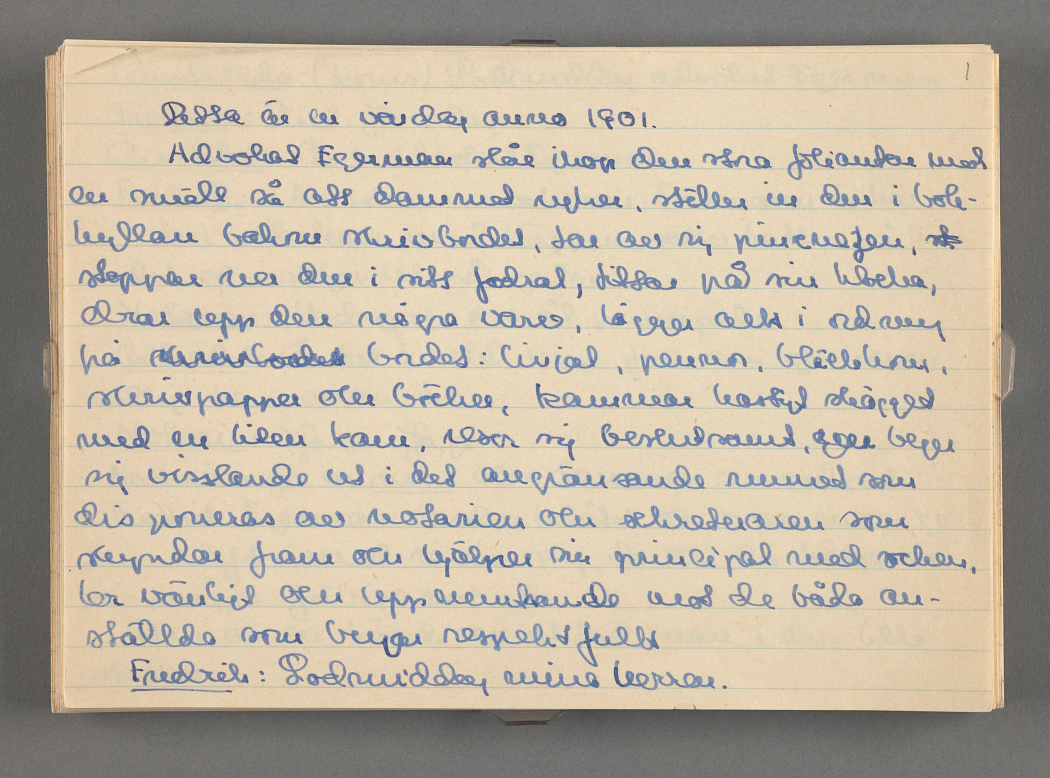 1
Detta är en vårdag anno 1901.
Advokat Egerman slår ihop den stora folianten med
en smäll så att dammet ryker, ställer in den i bok-
hyllan bakom skrivbordet, tar av sig pincenezen, st
stoppar ner den i sitt fodral, tittar på sin klocka,
drar upp den några varv, lägger allt i ordning
på skrivbordet bordet: linjal, pennor, bläckhorn,
skrivpapper och böcker, kammar hastigt skägget
med en liten kam, reser sig beslutsamt, beger
sig visslande ut i det angränsande rummet som
disponeras av notarien och sekreteraren som
skyndar fram och hjälper sin principal med rocken,
ler vänligt och uppmuntrande mot de båda an-
ställda som bugar respektfullt
Fredrik: Godmiddag mina herrar.